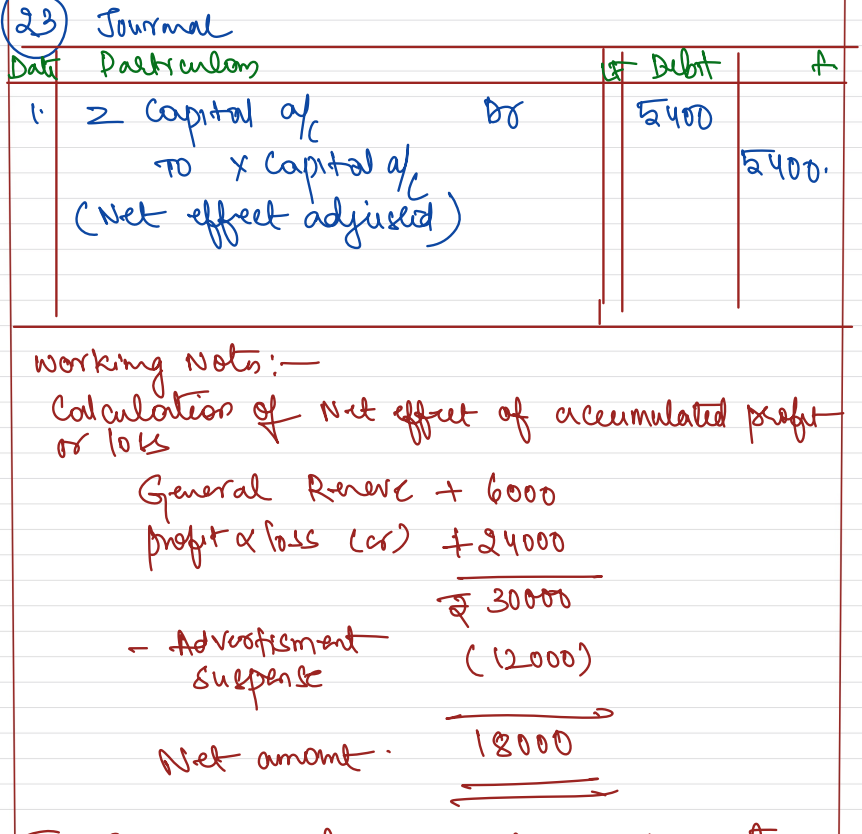 23 Journal
Date Particulars LF Debit
1. Z Capital a/c Dr 5400
TO X Capital a/c 5400.
(Net effect adjused)
Working Notes:—
Calculation of Net effect of accumulated profit
or loss
General Reserve + 6000
profit & loss (cr) + 24000
₹ 30000
- Advertisment (12000)
suspense
Net amount. 18000